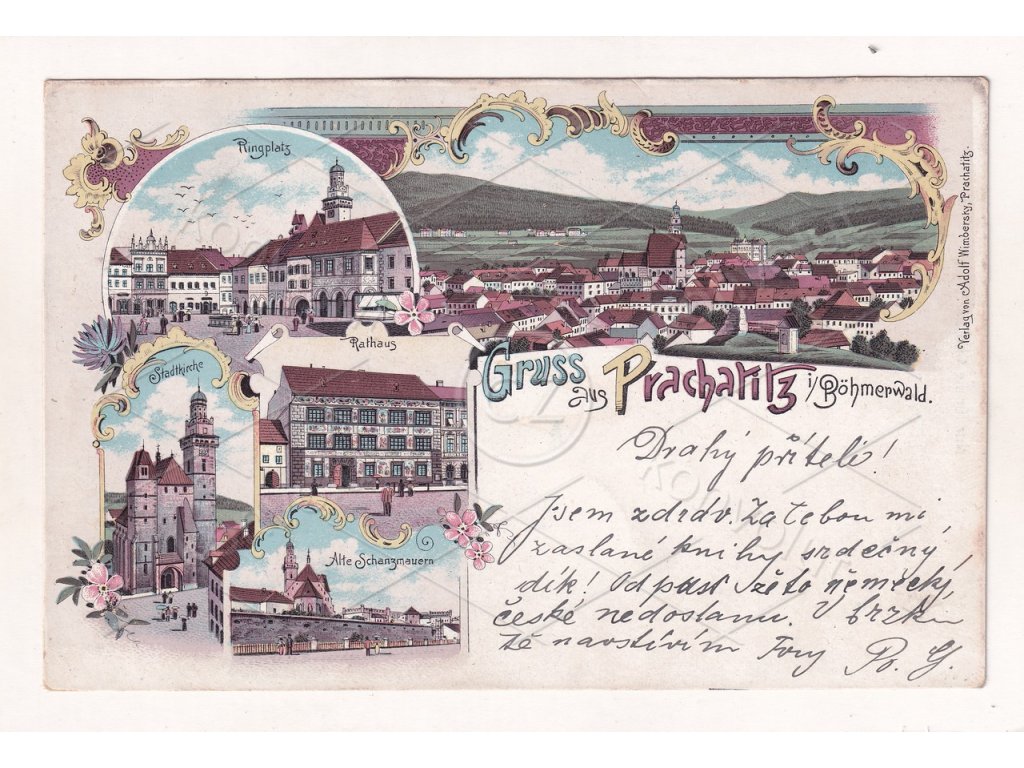 Ringplatz
Rathaus
Stadtkirche
Alte Schanzmauern
Gruss aus Prachatitz i/Böhmerwald.
Verlag von Adolf Wimbersky, Prachatitz.
Drahý příteli!
Jsem zdráv. Za tebou mi
zaslané knihy srdečný
dík! Od německý,
české nedostanu. V brzku
Tě navštívím